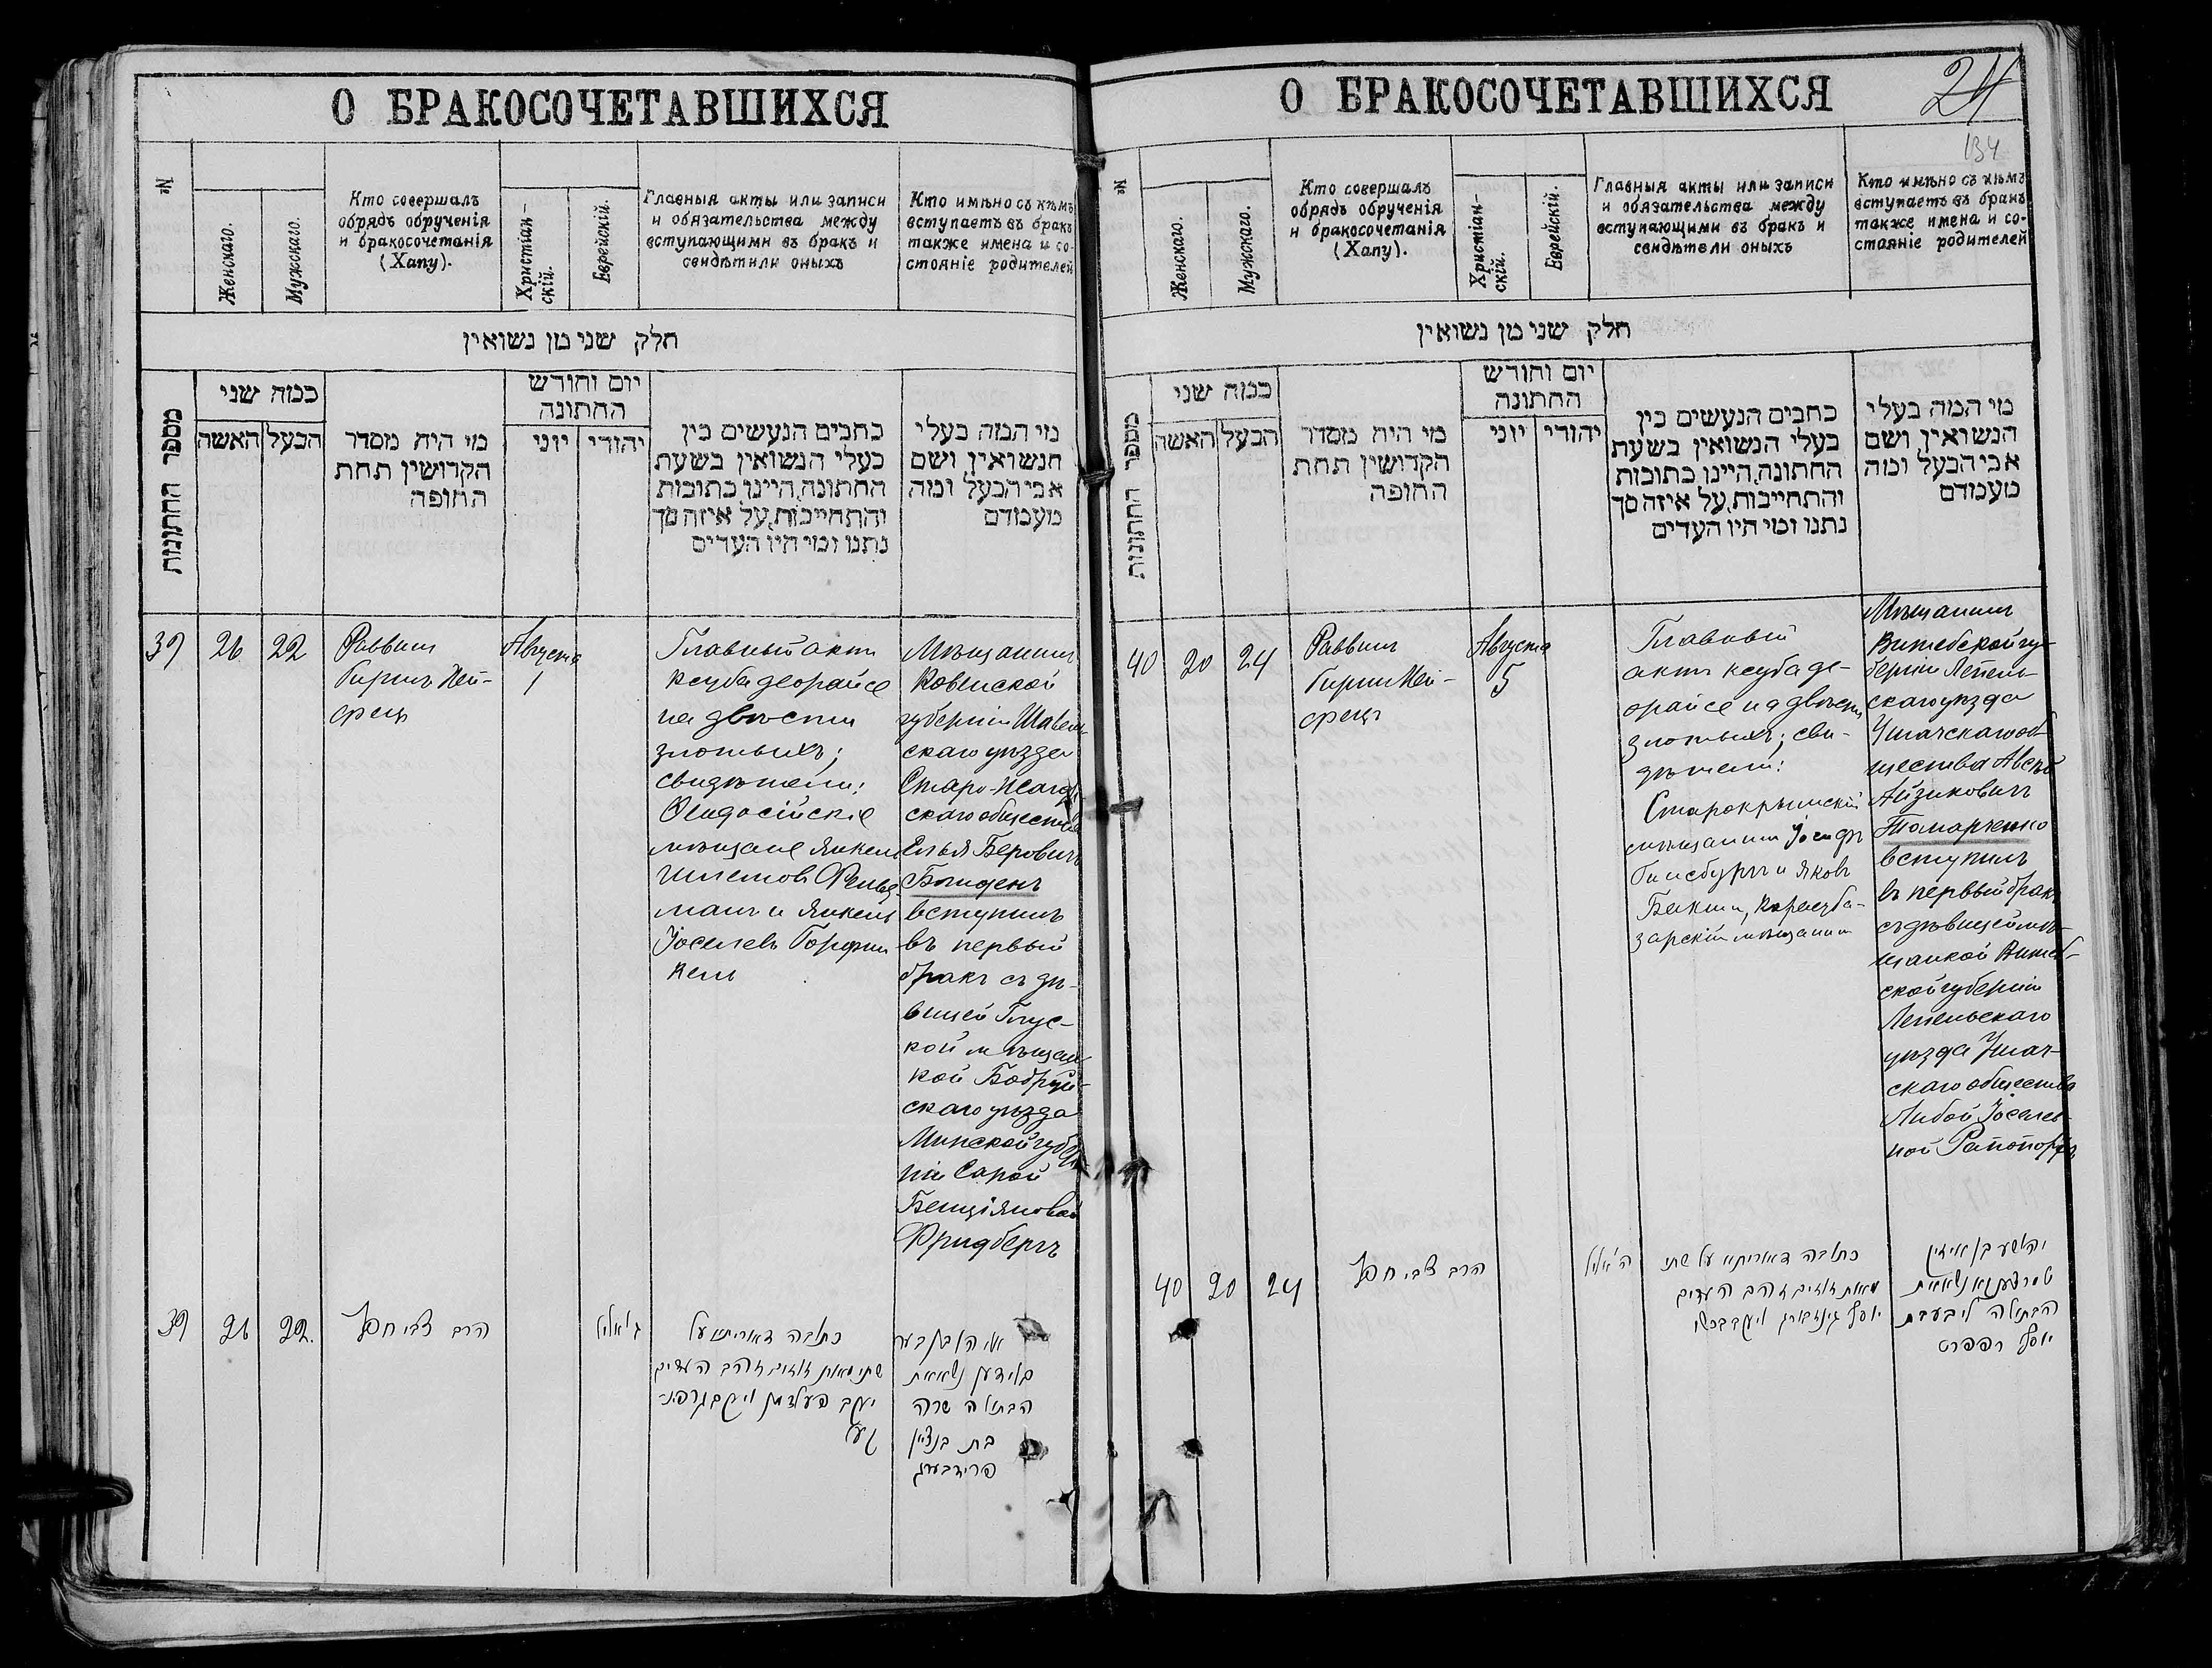 О БРАКОСОЧЕТАВШИХСЯ
№
Женскаго.
Мужскаго.
Кто совершалъ
обрядъ обрученія
и бракосочетанія
(Хапу).
Христіан-
скій.
Еврейскій.
Главныя акты или записи
и обязательства между
вступающими въ бракъ и
свидѣтили оныхъ
Кто имѣно съ кѣмъ
вступаетъ въ бракъ
также имена и со-
стояніе родителей
חלק שני מן נשואין
מספר החתונות
כמה שני
האשה
הבעל
מי היה מסדר
הקדושין תחת
החופה
יום וחודש
החתונה
יוני
יהודי
כתבים הנעשים בין
בעלי הנשואין בשעת
החתונה, היינו כתובות
והתחייבות, על איזה סך
נתנו ומי היו העדים
מי המה בעלי
הנשואין ושם
אבי הבעל ומה
מעמדם
39
26
22
Раввинъ
Гиршъ Хей-
фецъ
Августа
1
Главный актъ
ксуба деорайсе
на двѣсти
злотыхъ;
свидѣтели:
Ѳеодосійскіе
мѣщане Янкель
Шлемовъ Фельд
манъ и Янкель
Іоселевъ Горфин
кель
Мѣщанинъ
Ковенской
губерніи Шавель
скаго уѣзда
Старо-Жагор
скаго общества
Елья Беровичъ
вступилъ
въ первый
бракъ съ дѣ-
вицей Глус-
кой мѣщан
кой Бобруй-
скаго уѣзда
Минской губер
ніи Сарой
Бенціяновой
Фридбергъ
39
26
22.
הרב צבי חפץ
ג׳ אלול
כתובה דאוריתא על
שתי מאות זוזים זהב העדים
יעקב פעלדמן
אליהו בן בער
נשא את
הבתולה שרה
בת בנציון
פרידבערג
О БРАКОСОЧЕТАВШИХСЯ
24
134
№
Женскаго.
Мужскаго.
Кто совершалъ
обрядъ обрученія
и бракосочетанія
(Хапу).
Христіан-
скій.
Еврейскій.
Главныя акты или записи
и обязательства между
вступающими въ бракъ и
свидѣтели оныхъ
Кто имѣно съ кѣмъ
вступаетъ въ бракъ
также имена и со-
стояніе родителей
חלק שני מן נשואין
מספר החתונות
כמה שני
האשה
הבעל
מי היה מסדר
הקדושין תחת
החופה
יום וחודש
החתונה
יוני
יהודי
כתבים הנעשים בין
בעלי הנשואין בשעת
החתונה, היינו כתובות
והתחייבות, על איזה סך
נתנו ומי היו העדים
מי המה בעלי
הנשואין ושם
אבי הבעל ומה
מעמדם
40
20
24
Раввинъ
Гиршъ Хей-
фецъ
Августа
5
Главный
актъ ксуба де-
орайсе на двѣсти
злотыхъ; сви-
дѣтели:
Старокрымскій
мѣщанинъ Іосифъ
Гинсбургъ и Яковъ
Бакши, Карасуба-
зарскій мѣщанинъ
Мѣщанинъ
Витебской гу-
берніи Лепель-
скаго уѣзда
Ушачскаго об-
щества
Айзиковичъ
Томарченко
вступилъ
въ первый бракъ
съ дѣвицей мѣ-
щанкой Витеб-
ской губерніи
Лепельскаго
уѣзда Ушач-
скаго общества
Либой Іоселев-
ной Рапопортъ
40
20
24
הרב צבי חפץ
ה׳ אלול
כתובה דאוריתא על שתי
מאות זוזים זהב העדים
יוסף גינזבורג ויעקב בכשי
יהושע בן אייזיק
נשא את
הבתולה ליבע בת
יוסף רפפרט